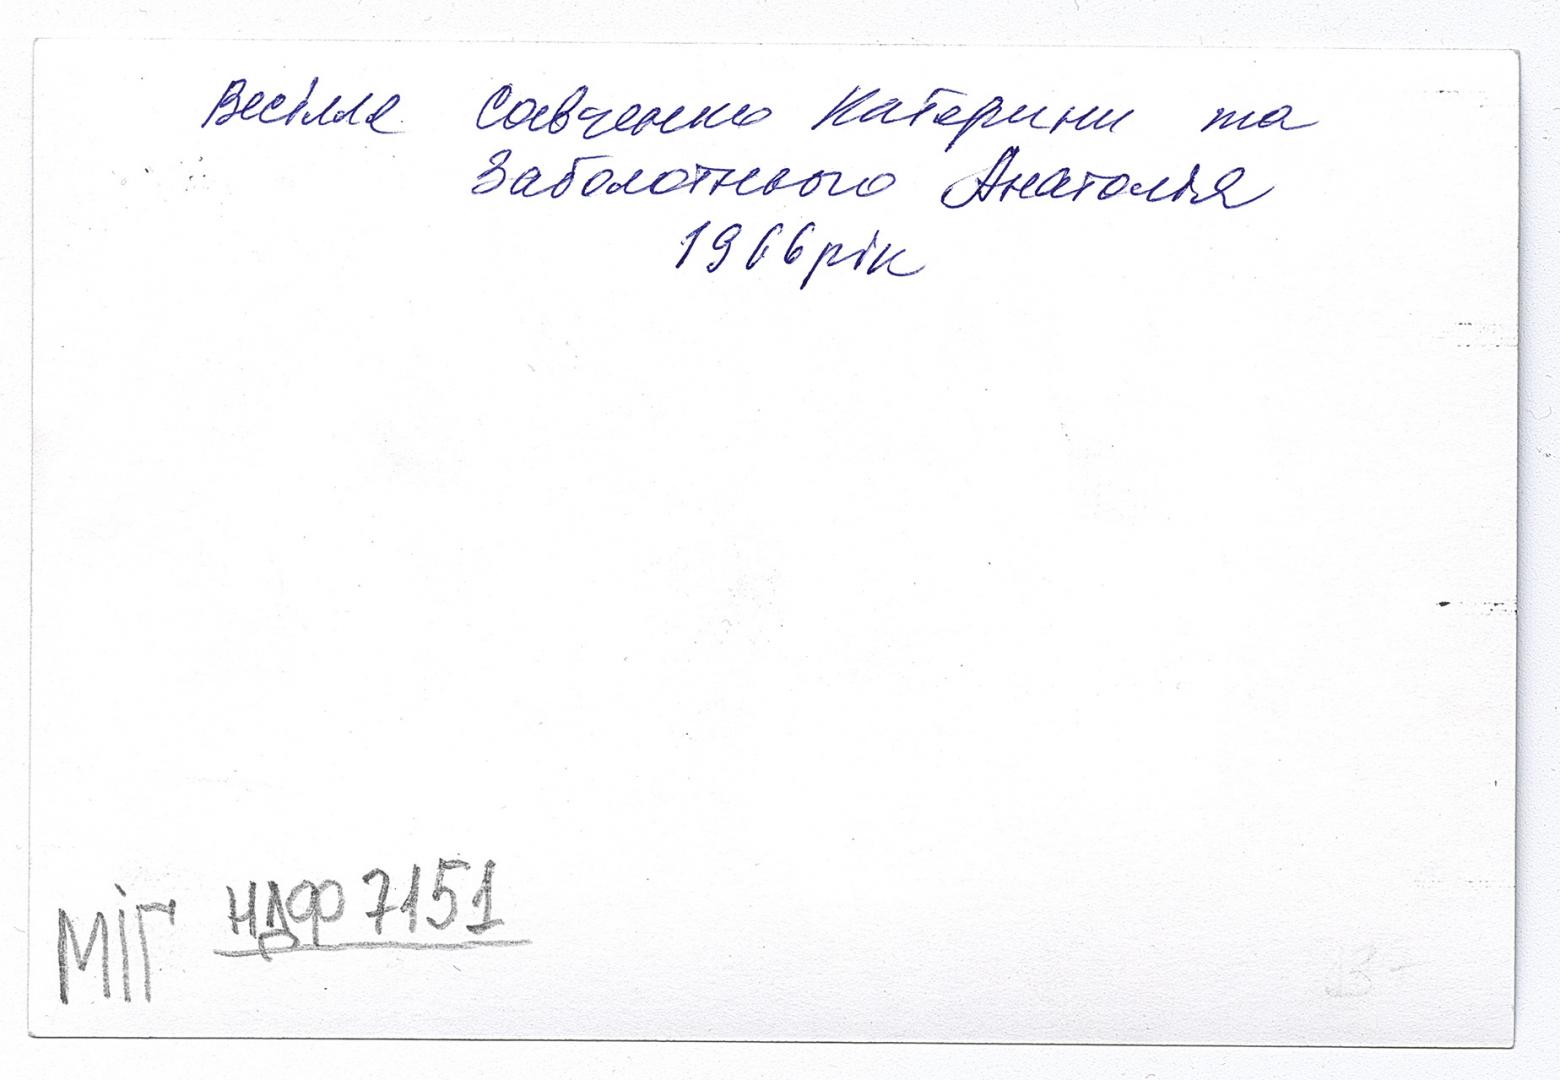 Весілля Савченко Катерини та
Заболотнього Анатолія
1966 рік
МІГ НДФ 7151